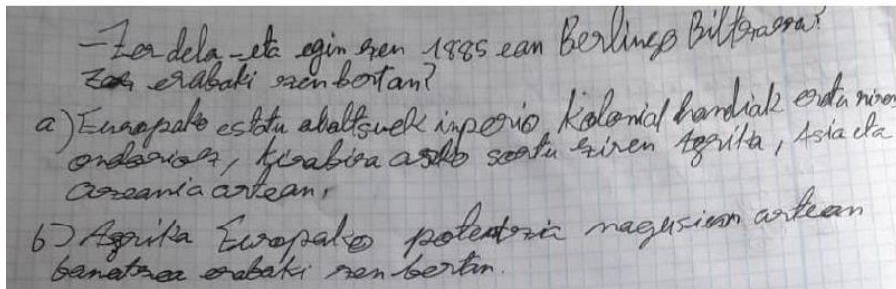 - Zer dela-eta egin zen 1885 ean Berlingo Biltzarra?
Zer erabaki zen bertan?
a) Europako estatu ahaltsuek inperio kolonial handiak eratu ziren
ondorioz, tirabira asko sortu ziren Afrika, Asia eta
Ozeania artean,
b) Afrika Europako potentzia nagusien artean
banatzea erabaki zen bertan.